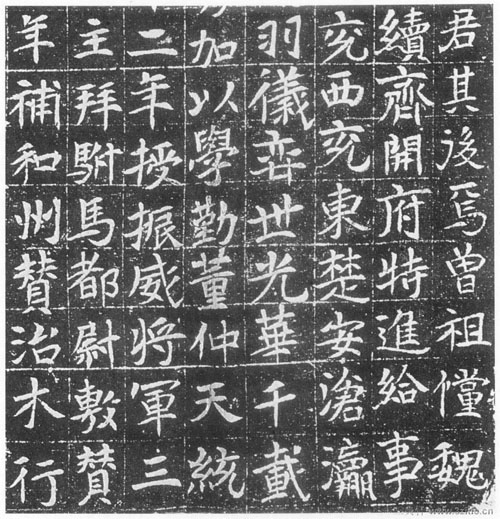 君其後焉曾祖儻魏
續齊開府特進給事
兖西兖東楚安滄瀛
羽儀弈世光華千載
加以學勤董仲天統
二年授振威將軍三
主拜駙馬都尉敷贊
年補和州贊治木行